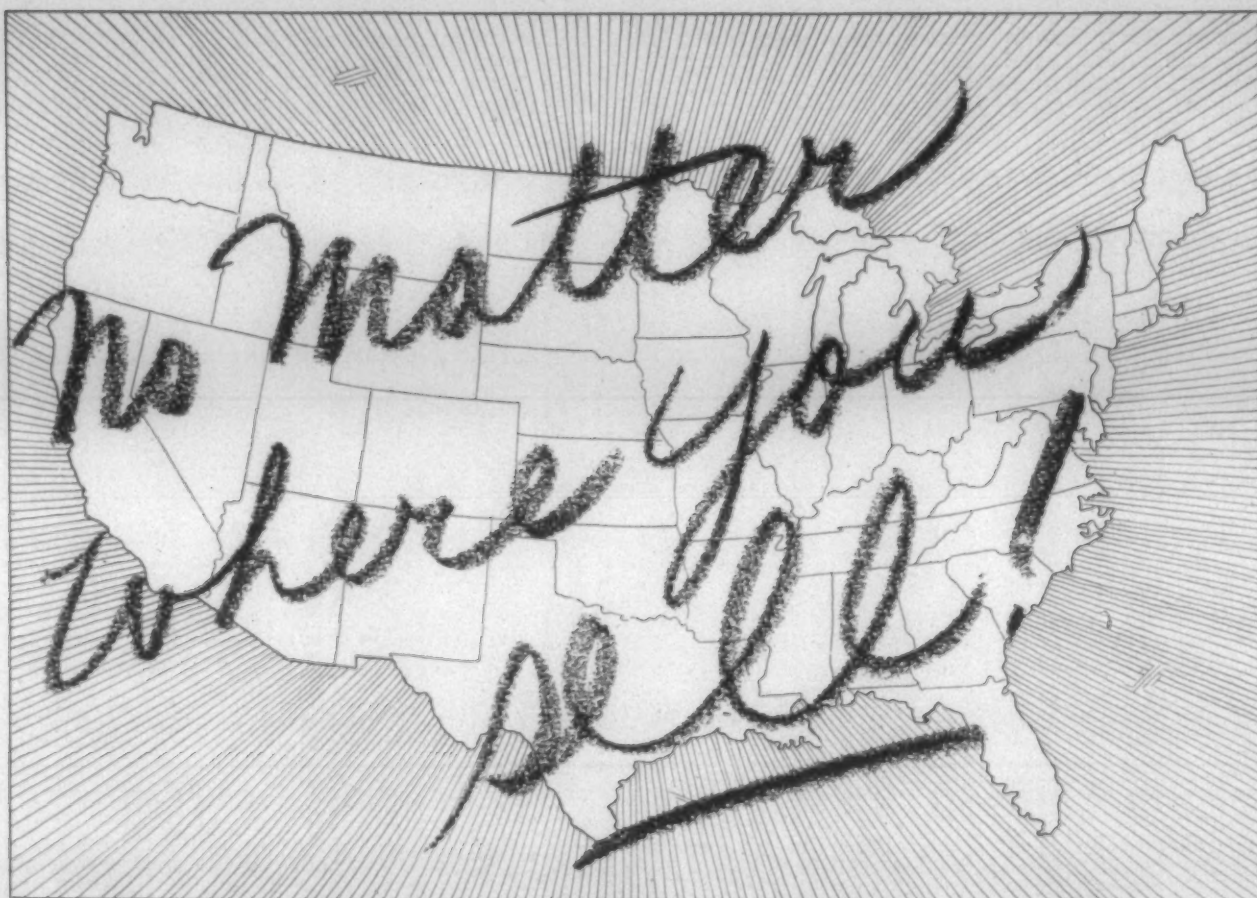 No Matter
where you
sell!